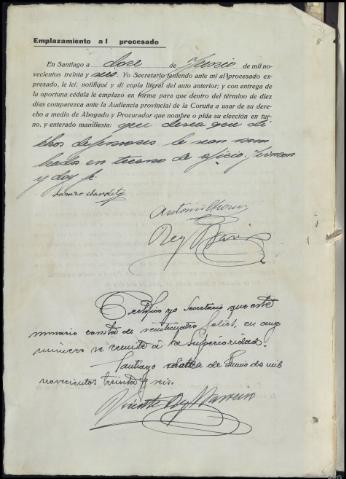 Emplazamiento al procesado
En Santiago a doce de Junio de mil no-
vecientos treinta y seis. Yo Secretario teniendo ante mi al procesado ex-
presado, le leí, notifiqué y di copia literal del auto anterior; y con entrega de
la oportuna cédula le emplazo en forma para que dentro del término de diez
días comparezca ante la Audiencia provincial de la Coruña a usar de su derecho
a medio de Abogado y Procurador que nombre o pida su elección en tur-
no, y enterado manifiesta: que desea que di-
chos defensores le sean nom-
brados en turno de oficio, firman
y doy fé
Antonio
Rey
Certifico yo Secretario que este
sumario consta de veinticuatro folios, en cuyo
número se remite a la Superioridad.
Santiago doce de Junio de mil
novecientos treinta y seis.
Vicente Rey Barreiro